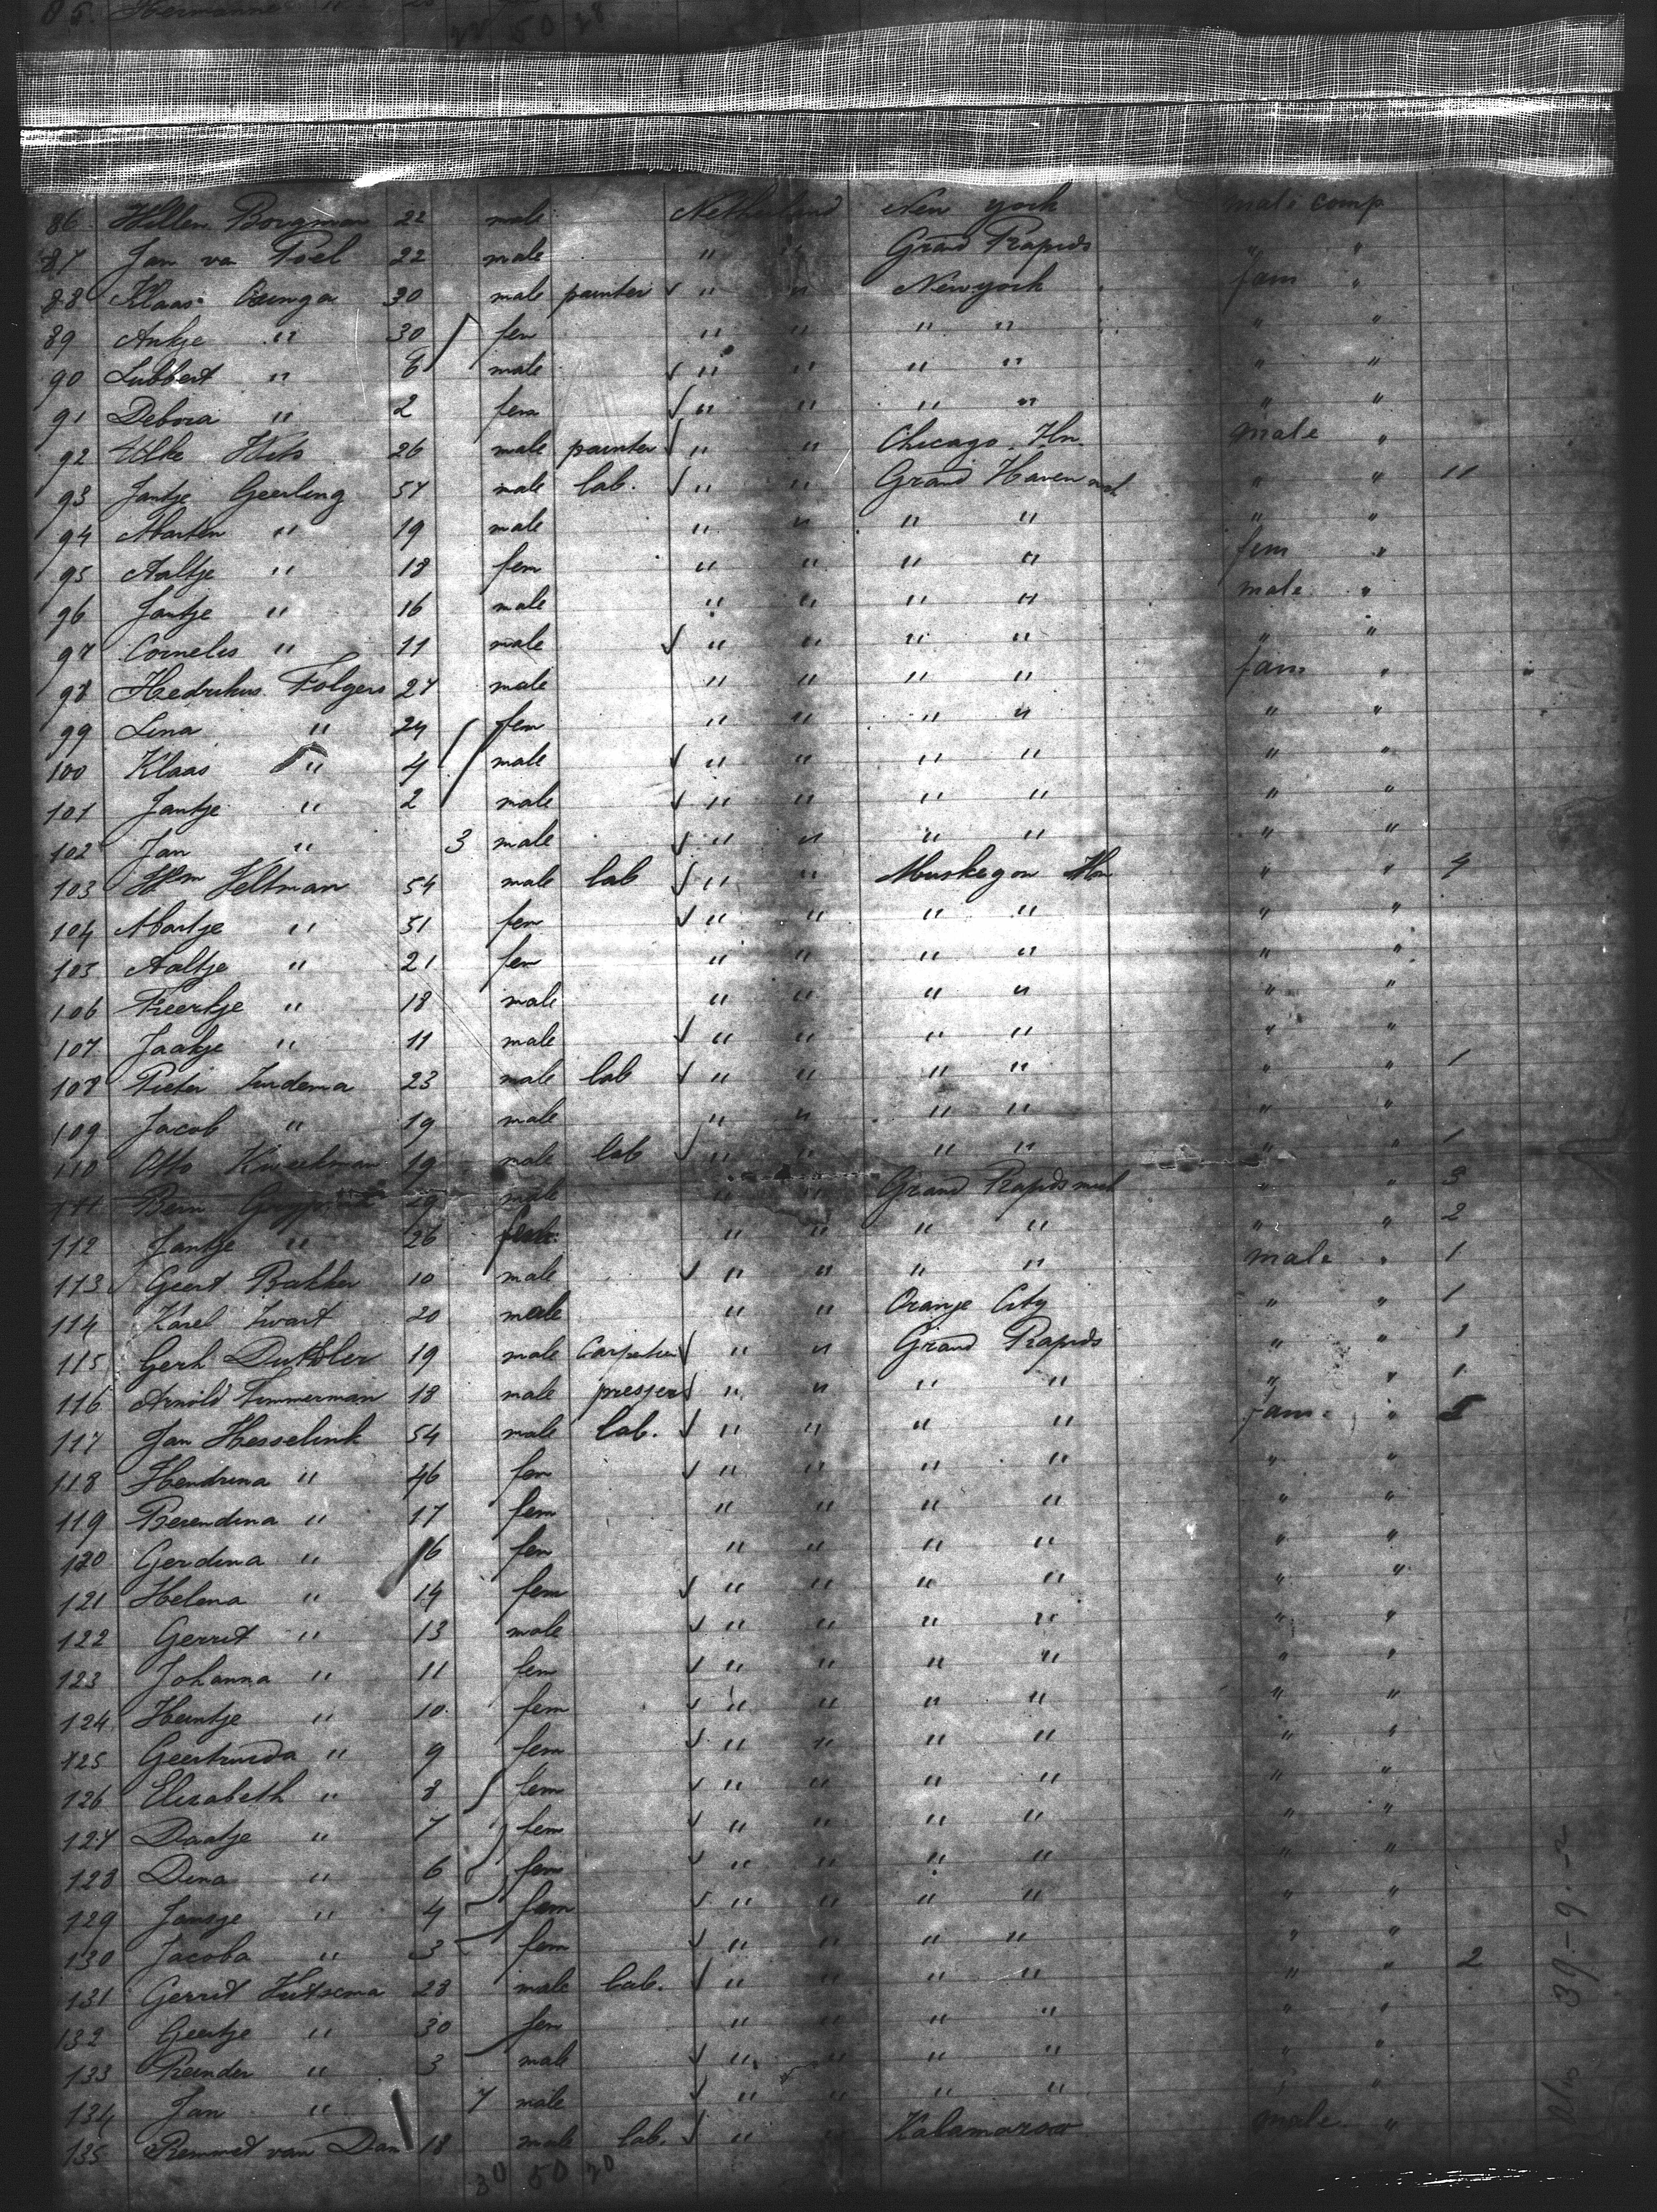 85 Hermanne "
22 50 28
86 Willem Borgman 22 male Netherland New york male comp
87 Jan va Poel 22 male " " Grand Rapids " "
88 Klaas 30 male painter " " Newyork fam "
89 Antje " 30 fem " " " " " "
90 Lubbert " 6 male " " " " " "
91 Debora " 2 fem " " " " " "
92 26 male painter " " Chicago male "
93 Jantje Geerling 57 male lab. " " Grand Haven mch " " 11
94 Marten " 19 male " " " " " "
95 Aaltje " 18 fem " " " " fem "
96 Jantje " 16 male " " " " male "
97 Cornelis " 11 male " " " " " "
98 Hedrikus Folgers 27 male " " " " fam "
99 Lina " 24 fem " " " " " "
100 Klaas " 4 male " " " " " "
101 Jantje " 2 male " " " " " "
102 Jan " 3 male " " " " " "
103 Wm Veltman 54 male lab " " Muskegon " " 4
104 Martje " 51 fem " " " " " "
105 Aaltje " 21 fem " " " " " "
106 Feertje " 18 male " " " " " "
107 Jaatje " 11 male " " " " " "
108 Pieter Zuidema 23 male lab " " " " " " 1
109 Jacob " 19 male " " " " " "
110 Otto Kweekman 19 male lab " " " " " " 1
111 Bern 29 male " " Grand Rapids mch " " 3
112 Jantje " 26 fem " " " " " " 2
113 Geert Bakker 10 male " " " " male " 1
114 Karel Zwart 20 male " " Oranje City " " 1
115 Gerh Duthler 19 male Carpenter " " Grand Rapids " " 1
116 Arnold Timmerman 18 male presser " " " " " " 1
117 Jan Hesselink 54 male lab. " " " " fam. "
118 Hendrina " 46 fem " " " " " "
119 Berendina " 17 fem " " " " " "
120 Gerdina " 16 fem " " " " " "
121 Helena " 14 fem " " " " " "
122 Gerrit " 13 male " " " " " "
123 Johanna " 11 fem " " " " " "
124 Heintje " 10 fem " " " " " "
125 Geertruida " 9 fem " " " " " "
126 Elisabeth " 8 fem " " " " " "
127 Daatje " 7 fem " " " " " "
128 Dina " 6 fem " " " " " "
129 Jansje " 4 fem " " " " " "
130 Jacoba " 3 fem " " " " " "
131 Gerrit Huitsema 28 male lab. " " " " " " 2
132 Geertje " 30 fem " " " " " "
133 Reinder " 3 male " " " " " "
134 Jan " 7 male " " " " " "
135 Remmet van Dam 18 male lab. " " Kalamazoo male "
30 50 20